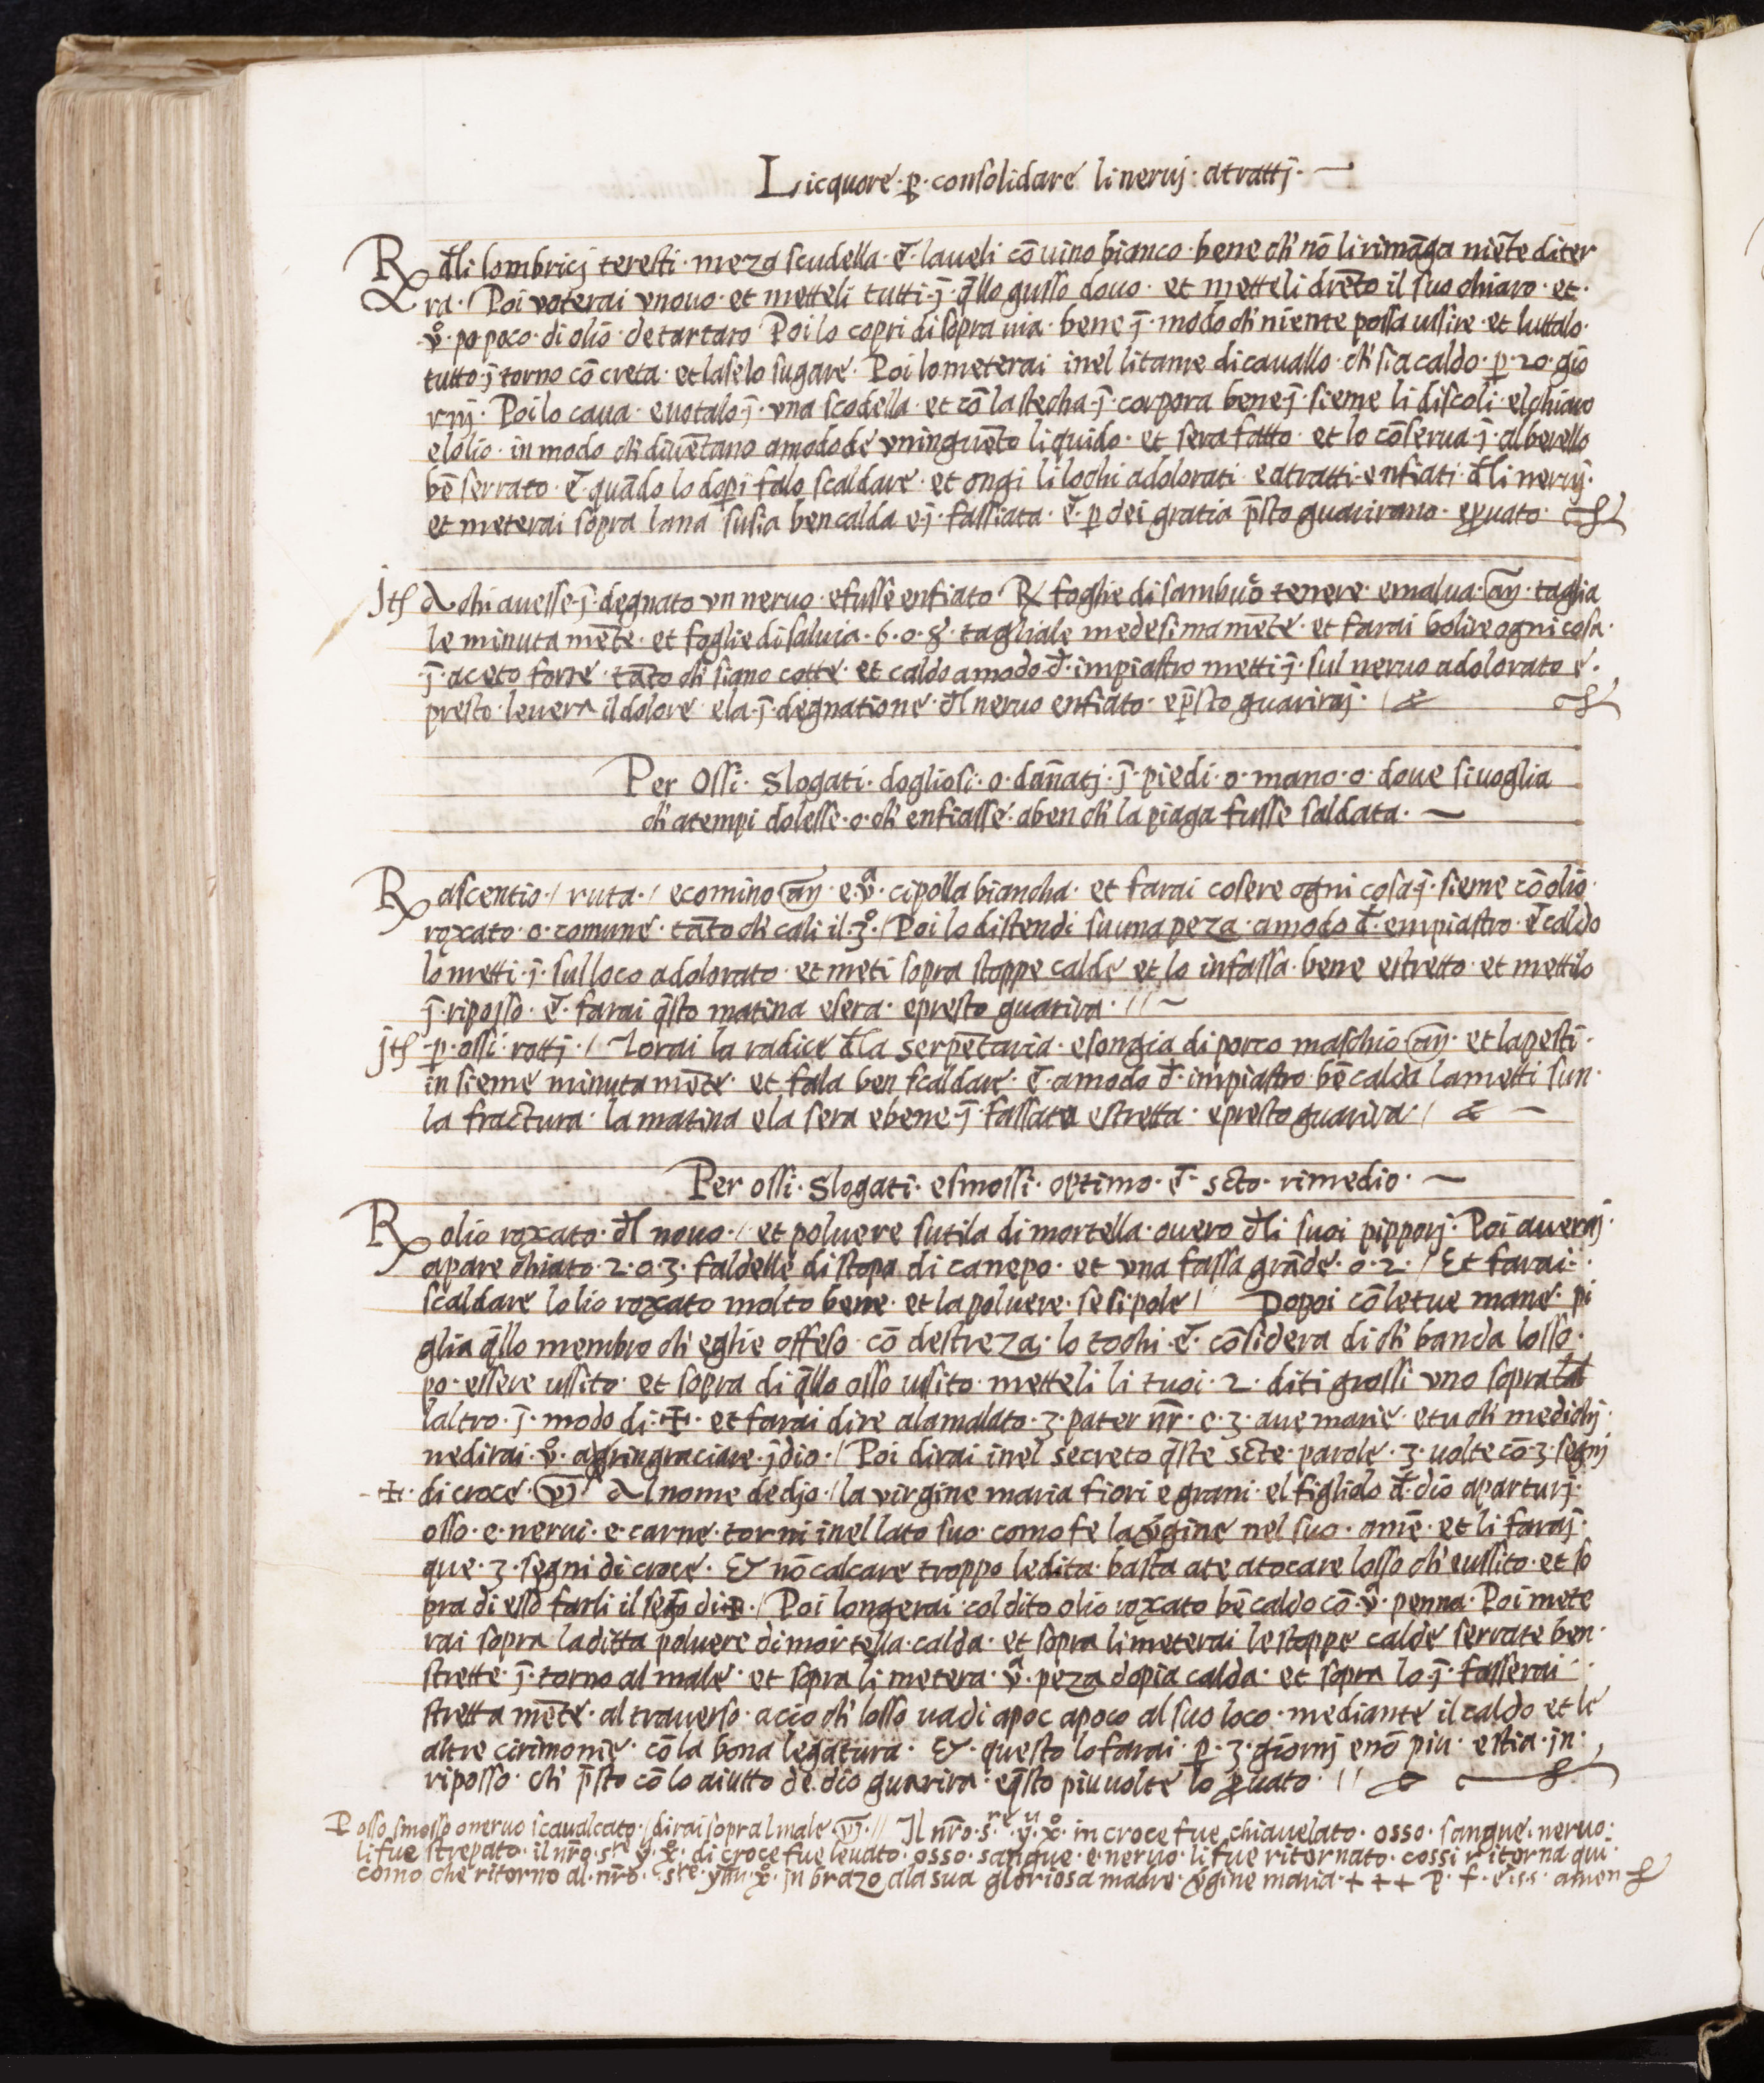 Licquore · p̱ · consolidare li neruj · atrattj · —
R dli lombricj teresti · meza scudella · e͞ · laueli cō uino bianco · bene ch' nō li rimāga niēte di ter
ra · / Poi voterai vnouo · et metteli tutti · j̄ · q̄llo gusso douo · et metteli drēto il suo chiaro · et ·
v̊ · po poco · di olio · de tartaro Poi lo copri di sopra uia · bene j̄ · modo ch' niente possa ussire · et luttalo ·
tutto · j̄ torno cō creta · et laselo sugare · Poi lo meterai inel litame di cauallo · ch' sia caldo · p̱ · 20 · gio
rnj · Poi lo caua · euotalo · j̄ · vna scodella · et cō la stecha · j̄ · corpora bene j̄ · sieme li discoli · elchiaro
elolio · in modo ch' diuētano amodo de vninguēto liquido · et sera fatto · et lo cōserua · j̄ · alberello
bē serrato · e͞ · quādo lo dopi falo scaldare · et ongi li lochi adolorati · e atratti · enfiati · dli neruj ·
et meterai sopra lana susia ben calda e · j̄ · fassiata · e͞ · p̱ dei gratia p̄sto guarirano · ꝓuato ·
jtē A chi auesse · j̄ · degnato vn neruo · efusse enfiato R foglie di sambuco tenere · emalua · an̄ · taglia
le minuta mēte · et foglie di saluia · 6 · o · 8 · tagliale medesima mēte · et farai bolire ogni cosa ·
j̄ · aceto forte · tāto ch' siano cotte · et caldo amodo d̄ · impiastro metti j̄ · sul neruo adolorato e ·
presto · leuera il dolore ela · j̄ · degnatione · dl neruo enfiato · e p̄sto guariraj · / &
Per Ossi · slogati · dogliosi · o · dan̄atj · j̄ · piedi · o · mano · o · doue si uoglia
ch' atempi dolesse · o · ch' enfiasse · aben ch' la piaga fusse saldata · —
R ascentio · / ruta · / ecomino an̄ · e · vᵃ · cipolla biancha · et farai cosere ogni cosa · j̄ · sieme cō olio ·
roxato · o · comune · tāto ch' cali il · 3° · / Poi lo distendi su una peza · amodo d̄ · empiastro · e͞ caldo
lo metti · j̄ · sul loco adolorato · et meti sopra stoppe calde et lo infassa · bene estretto · et mettilo
j̄ · riposso · e͞ · farai q̄sto matina esera · epresto guarira · // ~
jtē · p̱ · ossi · rottj · / Torai la radice dla serpētaria · esongia di porco maschio an̄ · et la pesti ·
in sieme minuta mēte · et fala ben scaldare · e͞ · amodo d̄ · impiastro · bē calda la metti sun ·
la fractura · la matina ela sera ebene · j̄ · fassata estretta · epresto guarira · / & —
Per ossi · slogati · esmossi · optimo · e͞ · scto · rimedio · —
R olio roxato · dl nouo · / et poluere sutila di mortella · ouero dli suoi pipporj · Poi aueraj ·
apare chiato · 2 · o · 3 · faldelle di stopa di canepo · et vna fassa grāde · o · 2 · / Et farai ·
scaldare lolio roxato molto bene · et la poluere · se si pole / Dopoi cō le tue mane · pi
glia q̄llo membro ch' eglie offeso · cō destreza · lo tochi · e͞ · cōsidera di ch' banda losso ·
po · essere ussito · et sopra di q̄llo osso ussito · metteli li tuoi · 2 · diti grossi vno sopra
laltro · j̄ · modo di · ✠ · et farai dire alamalato · 3 · pater nr̄ · e · 3 · aue marie · etu ch' medichj ·
nedirai · v̊ · a ringraciare · jdio · / Poi dirai inel secreto q̄ste scte · parole · 3 · uolte cō · 3 · segnj
✠ · di croce · Al nome dedjo · / la virgine maria fiori e grani · el figliolo d̄ · dio aparturj ·
osso · e · nerui · e · carne · torni inel lato suo · como fe la v̄gine nel suo · amē · et li faraj ·
que · 3 · segni di croce · Et nō calcare troppo ledita · basta ate atocare losso ch' eussito · et so
pra di esso farli il segno di ✠ · / Poi longerai · col dito olio roxato bē caldo cō · vᵃ · penna · Poi mete
rai sopra la ditta poluere di mortella · calda · et sopra li meterai le stoppe calde serrate ben ·
strette · j̄ · torno al male · et sopra li metera · vᵃ · peza dopia calda · et sopra lo · j̄ · fasserai ·
stretta mēte · al trauerso · acio ch' losso uadi apoc apoco al suo loco · mediante il caldo et le
altre cirimonie · cō la bona legatura · Et · questo lo farai · p̱ · 3 · giornj enō piu · estia · jn ·
riposso · ch' p̄sto cō lo aiutto de dio guarira · eq̄sto piu uolte lo ꝓuato · //
P osso smosso o neruo scaualcato · / dirai sopra l male · // Il nr̄o · sʳᵉ · yᵘ · x° · in croce fue chiauelato · osso · sangue · neruo ·
li fue strepato · il nr̄o · sʳᵉ · y · x° · di croce fue leuato · osso · sangue · e · neruo · li fue ritornato · cossi ritorna qui ·
como che ritorno al · nr̄o · sʳᵉ · yhu · x° · in brazo ala sua gloriosa madre · v̄gine maria · + + + p · f · e · s · s · amen